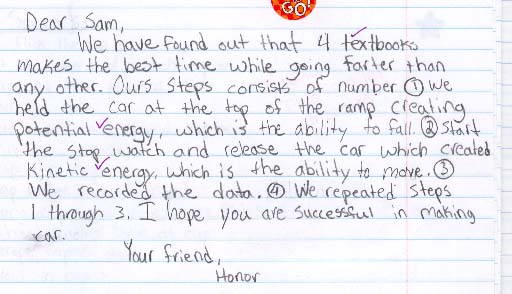 GO!
Dear Sam,
We have found out that 4 textbooks
makes the best time while going farter than
any other. Ours steps consists of number ① We
held the car at the top of the ramp creating
potential energy, which is the ability to fall. ② Start
the stop watch and release the car which created
Kinetic energy, which is the ability to move. ③
We recorded the data. ④ We repeated steps
1 through 3. I hope you are successful in making
car.
Your friend,
Honor